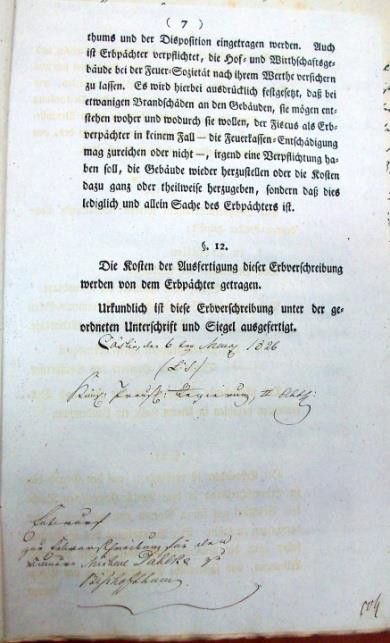 ( 7 )
thums und der Disposition eingetragen werden. Auch
ist Erbpächter verpflichtet, die Hof- und Wirthschaftsge-
bäude bei der Feuer-Sozietät nach ihrem Werthe versichern
zu lassen. Es wird hierbei ausdrücklich festgesetzt, daß bei
etwanigen Brandschäden an den Gebäuden, sie mögen ent-
stehen woher und wodurch sie wollen, der Fiscus als Erb-
verpächter in keinem Fall — die Feuerkassen-Entschädigung
mag zureichen oder nicht —, irgend eine Verpflichtung ha-
ben soll, die Gebäude wieder herzustellen oder die Kosten
dazu ganz oder theilweise herzugeben, sondern daß dies
lediglich und allein Sache des Erbpächters ist.
§. 12.
Die Kosten der Ausfertigung dieser Erbverschreibung
werden von dem Erbpächter getragen.
Urkundlich ist diese Erbverschreibung unter der ge-
ordneten Unterschrift und Siegel ausgefertigt.
Cöslin, den 6 ten März 1826
(L. S.)
Königl. Preuß. Regierung II Abth:
Entwurf
zur Erbverschreibung für den
Michael Dahlke zu
Bischoffthum